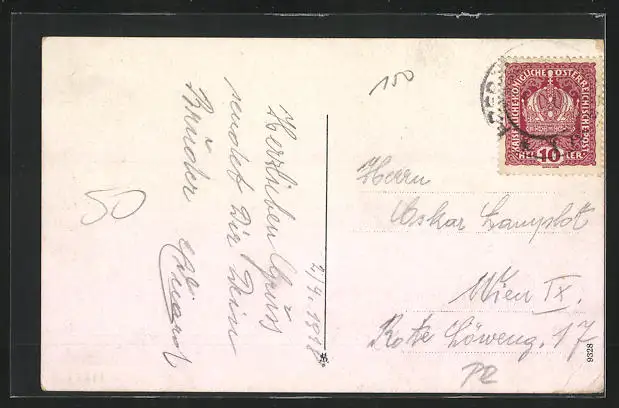 150
KAISERLICHE KÖNIGLICHE ÖSTERREICHISCHE POST
10
HELLER
Herrn
Oskar Lamplot
Wien IX.
Rote Löweng. 17
Herzlichen Gruss
sendet Dir Dein
Bruder
Eduard
2/9. 1918
50
9328